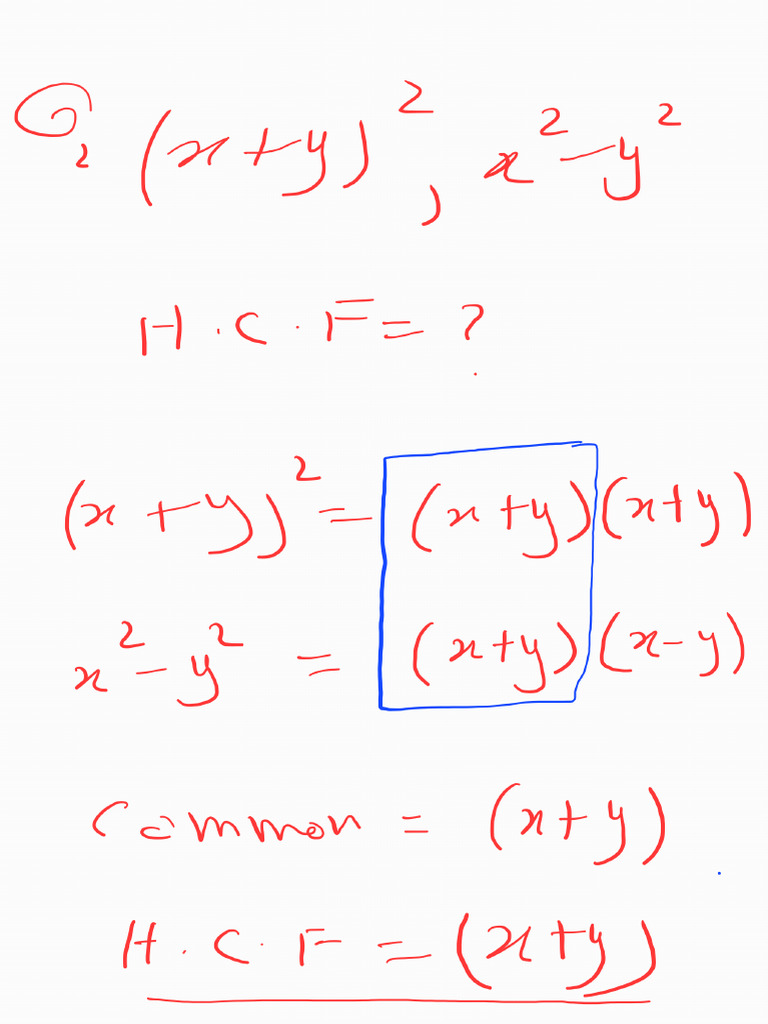 Q₂ (x+y)², x²-y²
H.C.F = ?
(x+y)² = (x+y)(x+y)
x²-y² = (x+y)(x-y)
Common = (x+y)
H.C.F = (x+y)